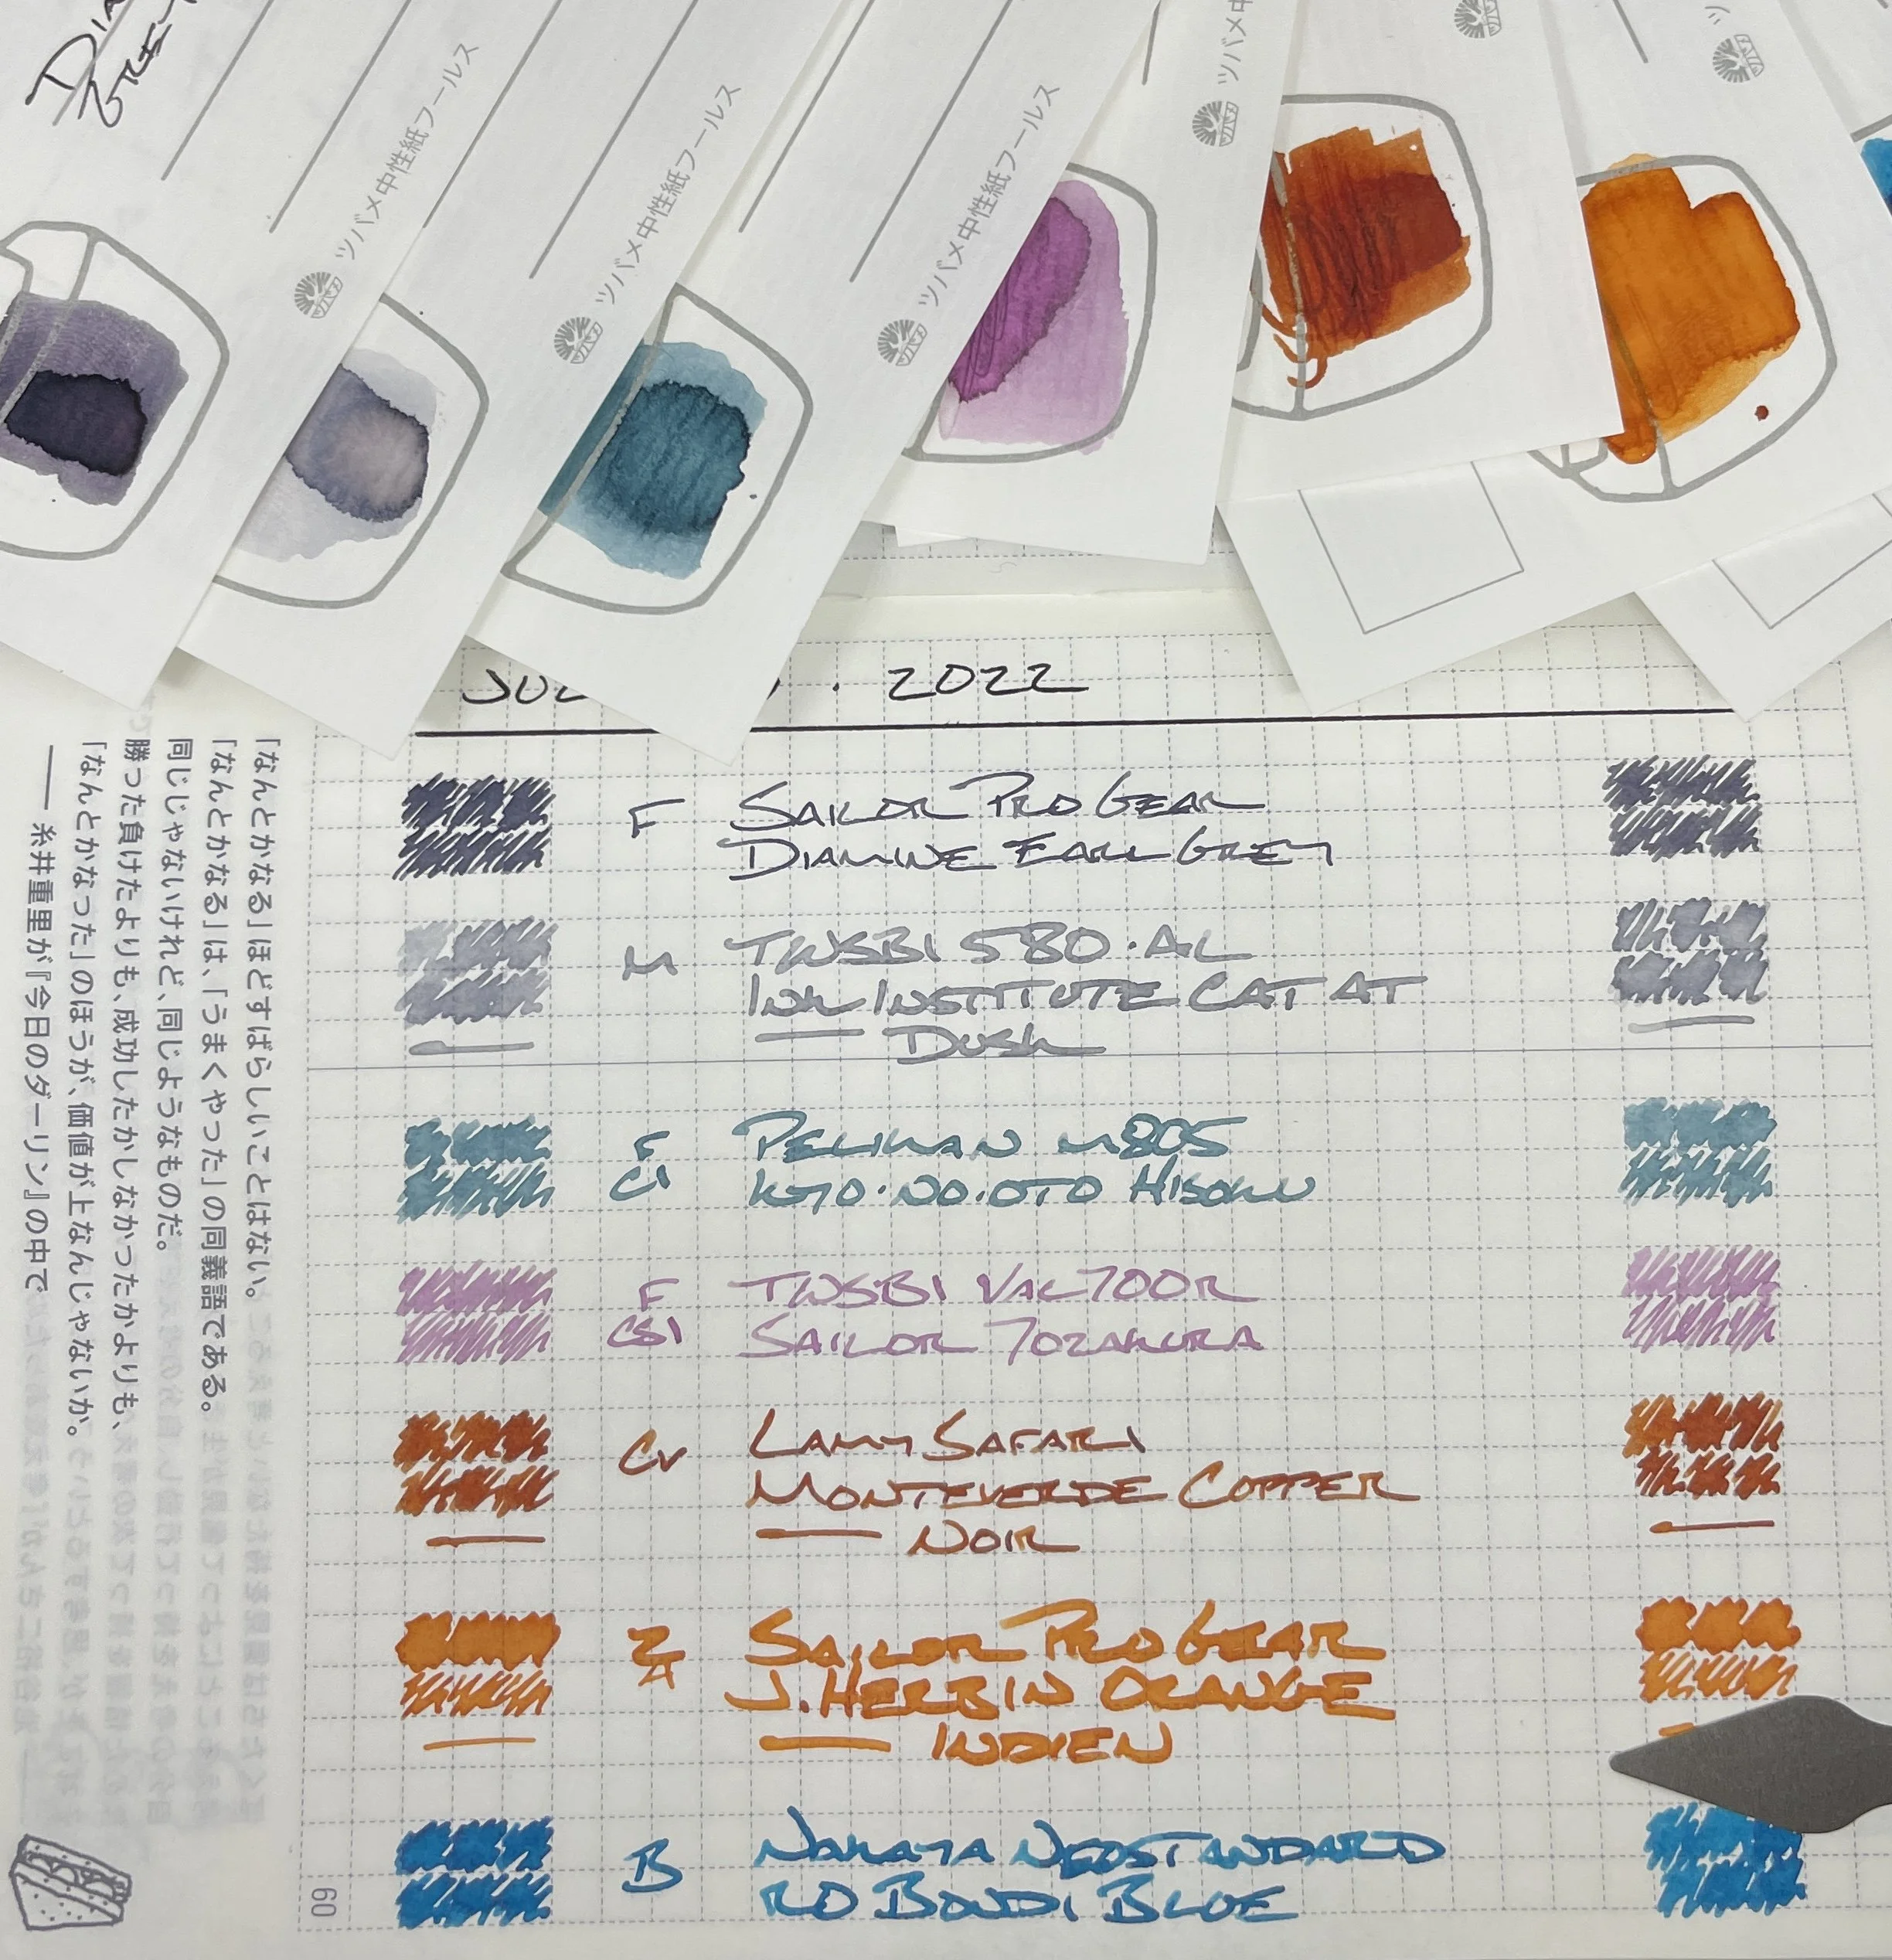 ツバメ中性紙フールス
ツバメ中性紙フールス
ツバメ中性紙フールス
ツバメ中
2022
F SAILOR PRO GEAR
DIAMINE EARL GREY
M TWSBI 580·AL
INK INSTITUTE CAT AT
DUSK
F PELIKAN M805
CI KYO·NO·OTO HISOKU
F TWSBI VAC700R
CSI SAILOR YOZAKURA
LAMY SAFARI
MONTEVERDE COPPER
NOIR
SAILOR PRO GEAR
J. HERBIN ORANGE
INDIEN
B NAKAYA NEOSTANDARD
RO BONDI BLUE
「なんとかなる」ほどすばらしいことはない。
「なんとかなる」は、「うまくやった」の同義語である。
同じじゃないけれど、同じようなものだ。
勝った負けたよりも、成功したかしなかったかよりも、
「なんとかなった」のほうが、価値が上なんじゃないか。
—— 糸井重里が『今日のダーリン』の中で
60